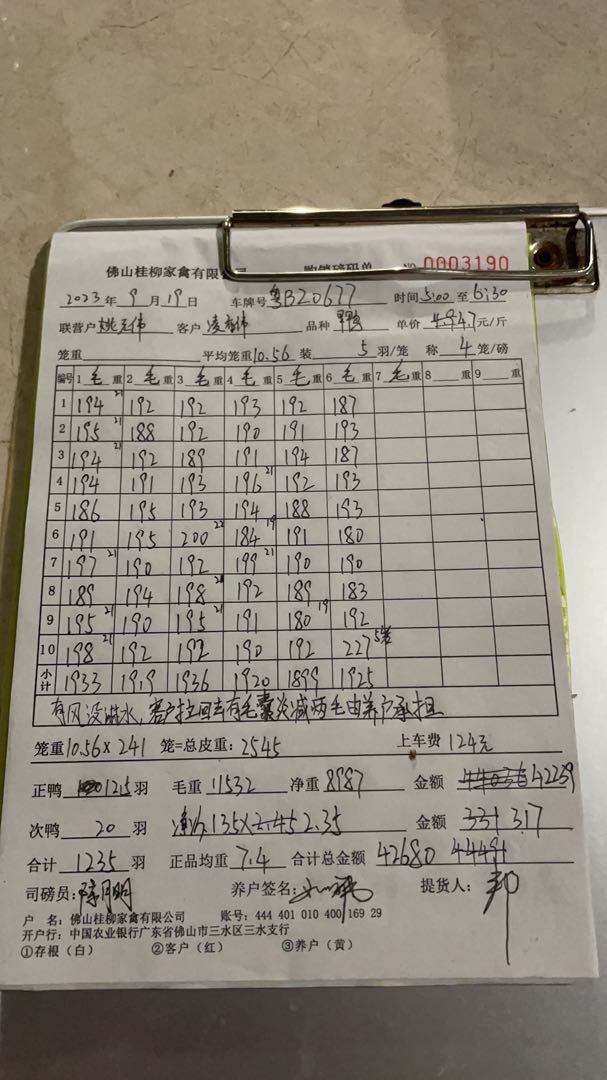 佛山桂柳家禽有限公司 购销磅码单 NO 0003190
2023年 9月 19日 车牌号 粤B20677 时间 5:00 至 6:30
联营户 客户 凌 伟 品种 单价 4.7元/斤
笼重 平均笼重 10.56 装 5 羽/笼 称 4 笼/磅
编号 1 毛 重 2 毛 重 3 毛 重 4 毛 重 5 毛 重 6 毛 重 7 毛 重 8 重 9 重
1 194 21 192 192 193 192 187
2 195 21 188 192 190 191 193
3 194 21 192 189 191 194 187
4 194 191 193 196 21 192 193
5 186 195 193 194 188 193
6 191 195 200 22 184 19 191 180
7 197 21 190 192 199 21 190 190
8 189 194 198 21 192 189 183
9 195 21 190 195 21 191 180 19 192
10 198 21 192 192 190 192 227 5笼
小计 1933 1919 1936 1920 1899 1925
有风没淋水,客户拉回去有毛囊炎减两毛由养户承担
笼重 10.56 × 241 笼=总皮重: 2545 上车费 124元
正鸭 1215 羽 毛重 11532 净重 8987 金额 42239
次鸭 20 羽 135× 2.35 金额 317
合计 1235 羽 正品均重 7.4 合计总金额 42680
司磅员: 陈月明 养户签名: 提货人: 邦
户 名: 佛山桂柳家禽有限公司 账号: 444 401 010 400 169 29
开户行: 中国农业银行广东省佛山市三水区三水支行
①存根(白) ②客户(红) ③养户(黄)